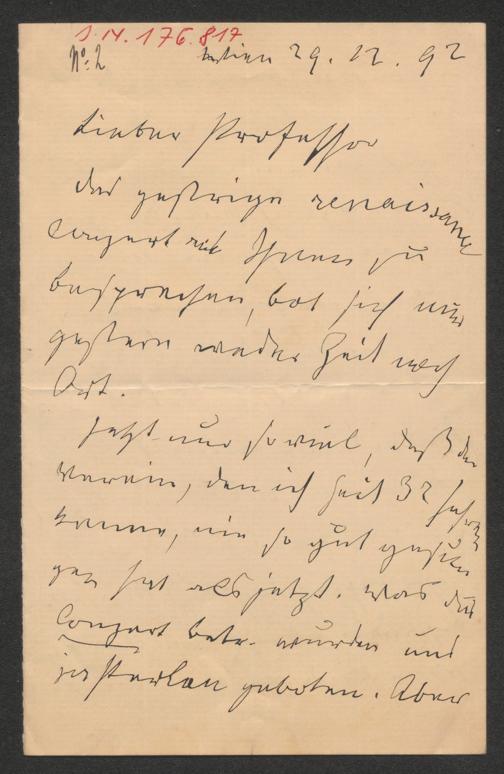 J.N. 176.817
No. 2
Wien 29. 12. 92
Lieber Professor
das gestrige renaissance
Conzert mit Ihnen zu
besprechen, bot sich mir
gestern weder Zeit noch
Ort.
Jetzt nur soviel, daß der
Verein, den ich seit 32 Jahren
kenne, nie so gut gesun
gen hat als jetzt. Was das
Conzert betr. wurden uns
geboten. Aber